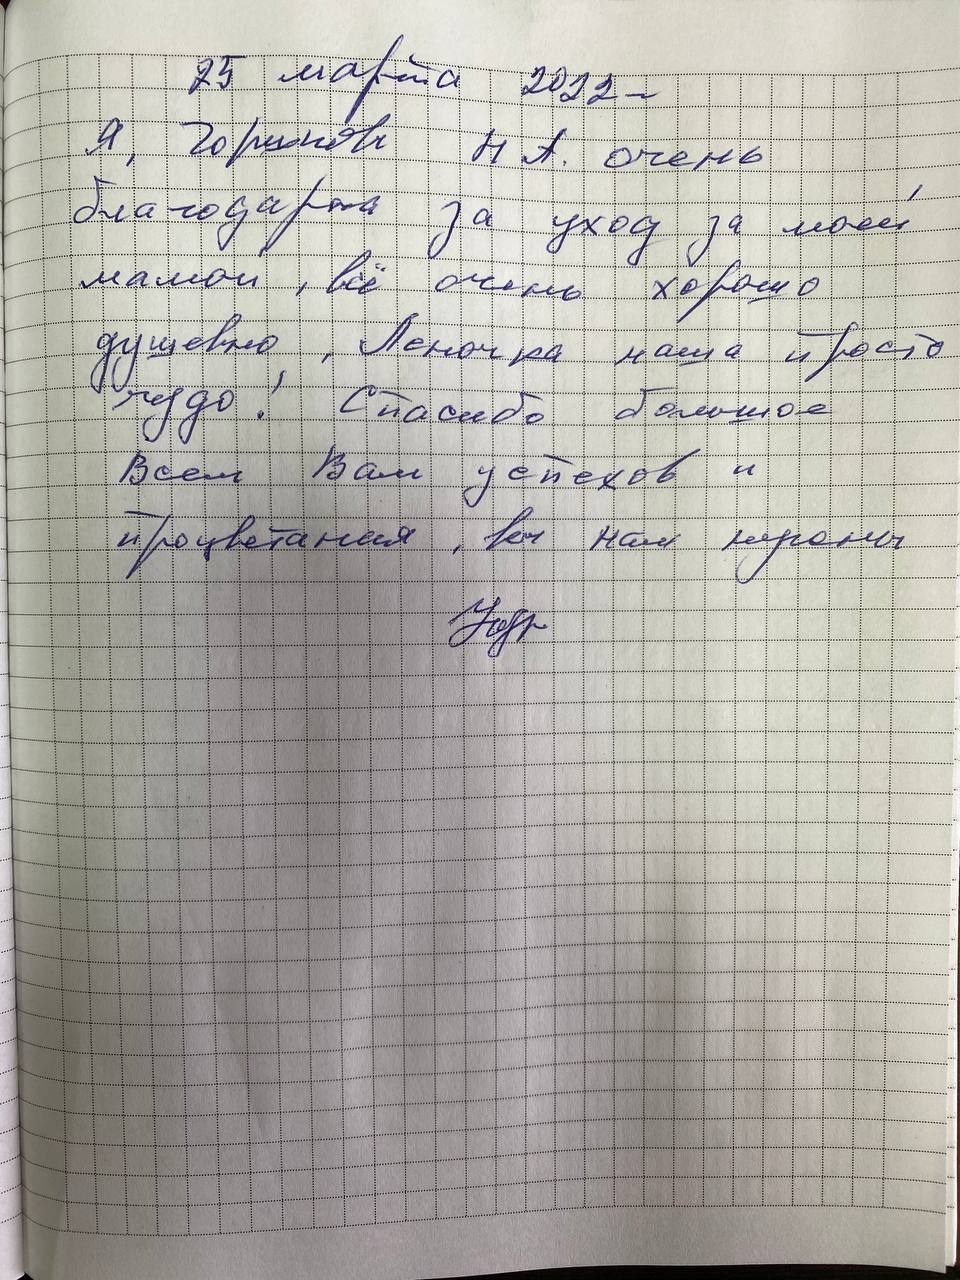 25 марта 2022
Я, Н А. очень
благодарна за уход за моей
мамой, всё очень хорошо
душевно, Леночка наша просто
чудо! Спасибо большое
Всем Вам успехов и
процветания, вы нам нужны